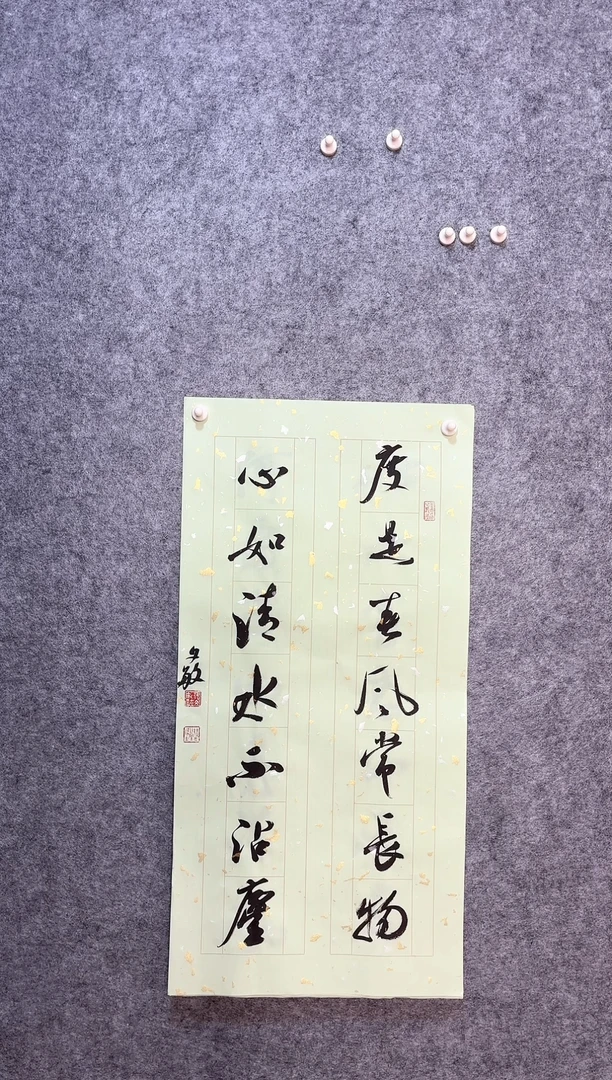 度是春風常長物
心如清水不沾塵
文敏